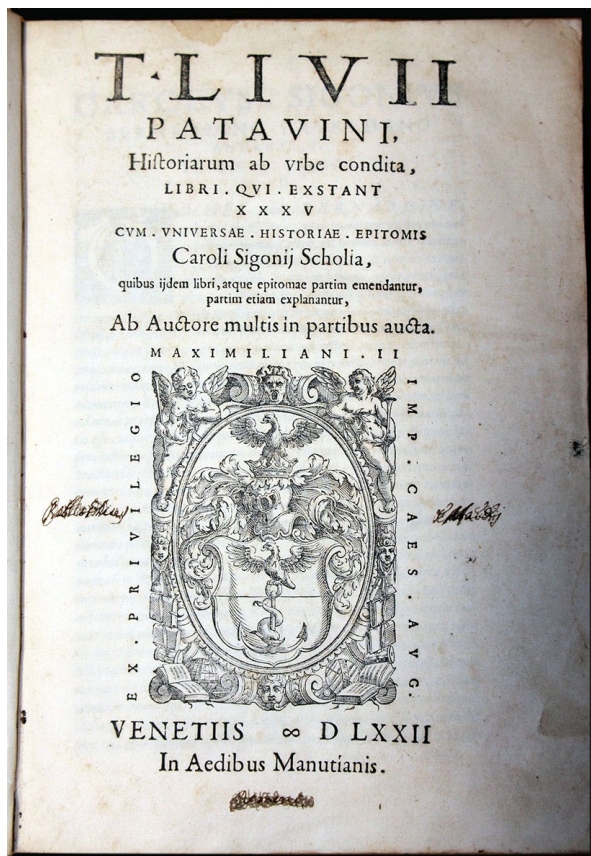 T·LIVII
PATAVINI,
Hiſtoriarum ab vrbe condita,
LIBRI . QVI . EXSTANT
X X X V
CVM . VNIVERSAE . HISTORIAE . EPITOMIS
Caroli Sigonij Scholia,
quibus ijdem libri, atque epitomae partim emendantur,
partim etiam explanantur,
Ab Auctore multis in partibus aucta.
MAXIMILIANI . II
IMP . CAES . AVG.
EX . PRIVILEGIO
VENETIIS ∞ D LXXII
In Aedibus Manutianis.